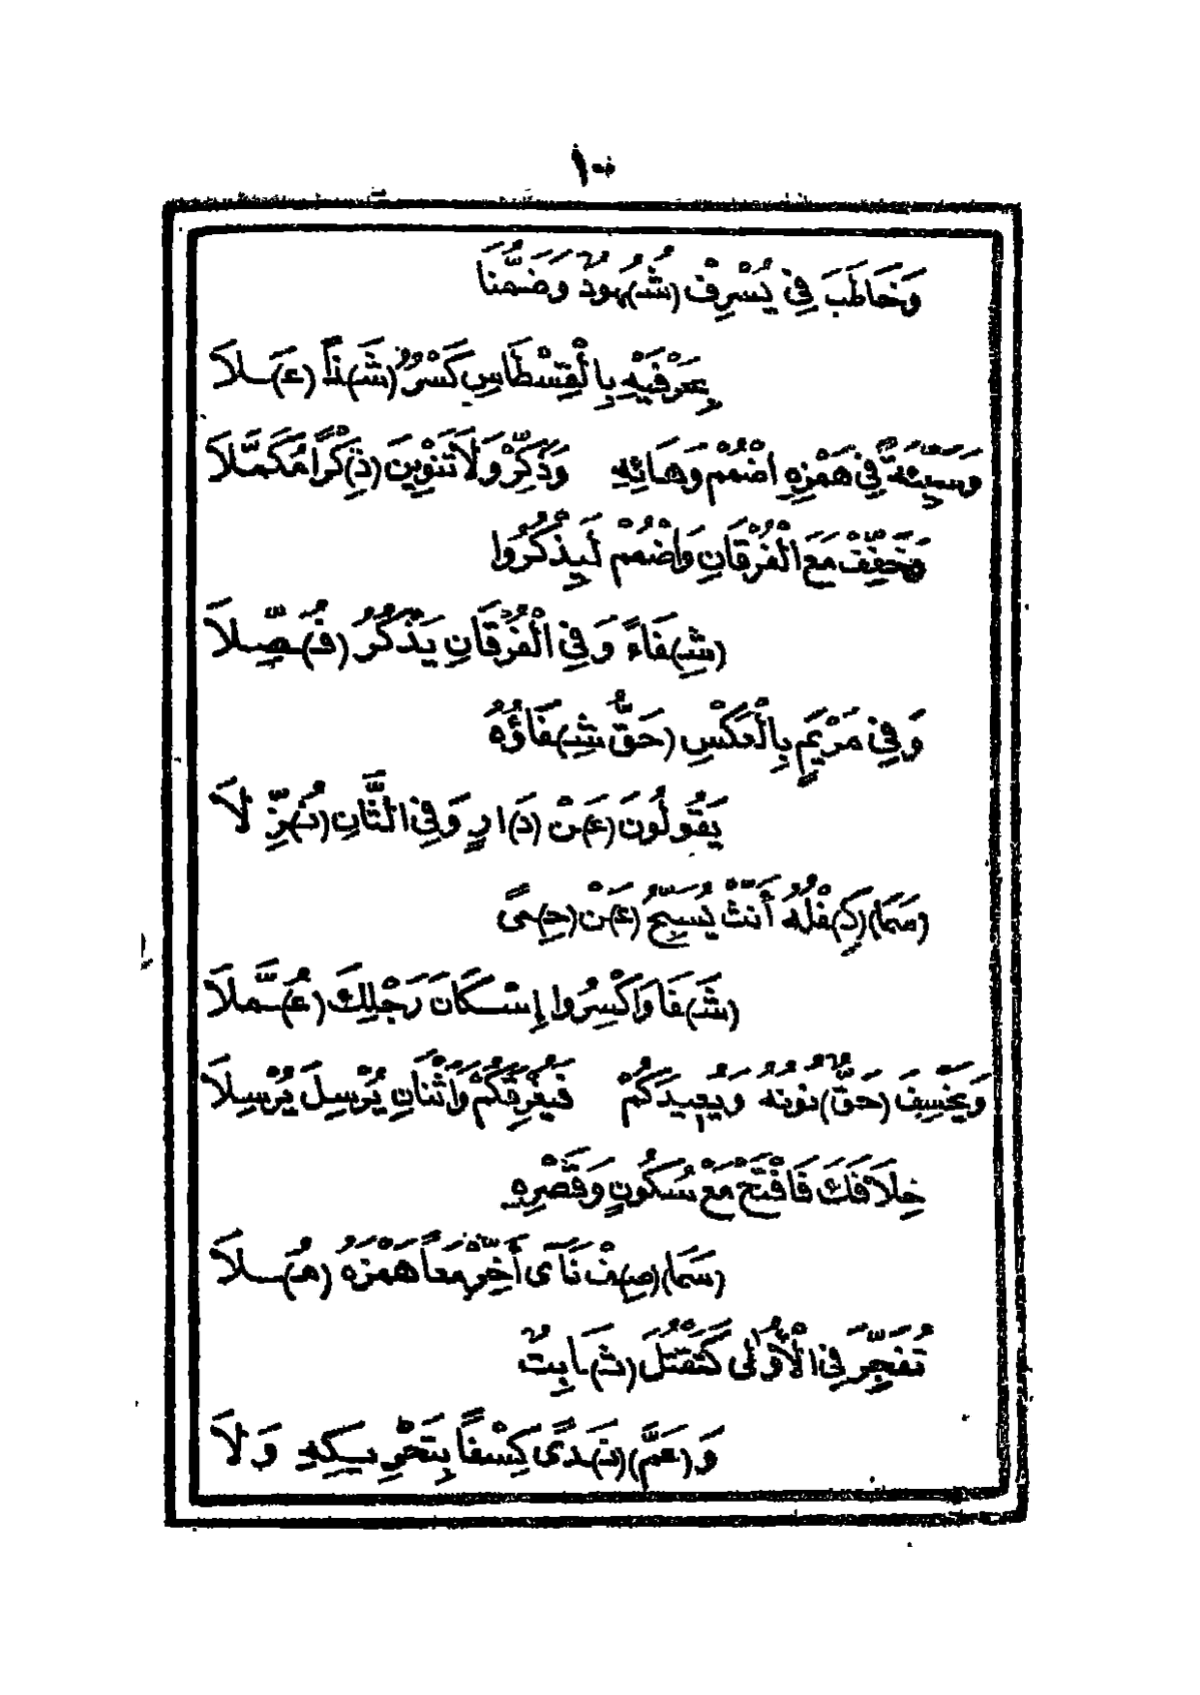 ١٠٠
وَخَاطَبَ فِي يُسْرِفْ (شُـ)ـهُودٌ وَضَمُّنَا
بِحَرْفَيْهِ بِالْقِسْطَاسِ كَسْرُ (شَـ)ـذًا (عَـ)ـلاَ
وَسَيِّئَةً فِي هَمْزِهِ اضْمُمْ وَهَائِهِ وَذَكِّرْ وَلاَ تَنْوِينَ (ذِ)كْرًا مُكَمَّلاَ
وَخَفِّفْ مَعَ الْفُرْقَانِ وَاضْمُمْ لِيَذْكُرُوا
(شِـ)ـفَاءً وَفِي الْفُرْقَانِ يَذْكُرُ (فُـ)ـصِّلاَ
وَفِي مَرْيَمٍ بِالْعَكْسِ (حَقٌّ شِـ)ـفَاؤُهُ
يَقُولُونَ (عَـ)ـنْ (دَ)ارٍ وَفِي الثَّانِ (نُـ)ـزِّلاَ
(سَمَا) (كِـ)ـفْلُهُ أَنِّثْ يُسَبِّحُ (عَـ)ـنْ (حِـ)ـمًى
(شَـ)ـفَا وَاكْسِرُوا إِسْكَانَ رَجْلِكَ (عُـ)ـمَّلاَ
وَيَخْسِفَ (حَقٌّ) نُونُهُ وَيُعِيدَكُمْ فَيُغْرِقَكُمْ وَاثْنَانِ يُرْسِلَ يُرْسِلاَ
خِلاَفَكَ فَافْتَحْ مَعْ سُكُونٍ وَقَصْرِهِ
(سَمَا) (صِـ)ـفْ نَآى أَخِّرْ مَعاً هَمْزَهُ (مُـ)ـلاَ
تُفَجِّرَ فِي الْأُولَى كَتَقْتُلَ (ثَـ)ـابِتٌ
وَ(عَمَّ) (نَـ)ـدًى كِسْفاً بِتَحْرِيكِهِ وَلاَ